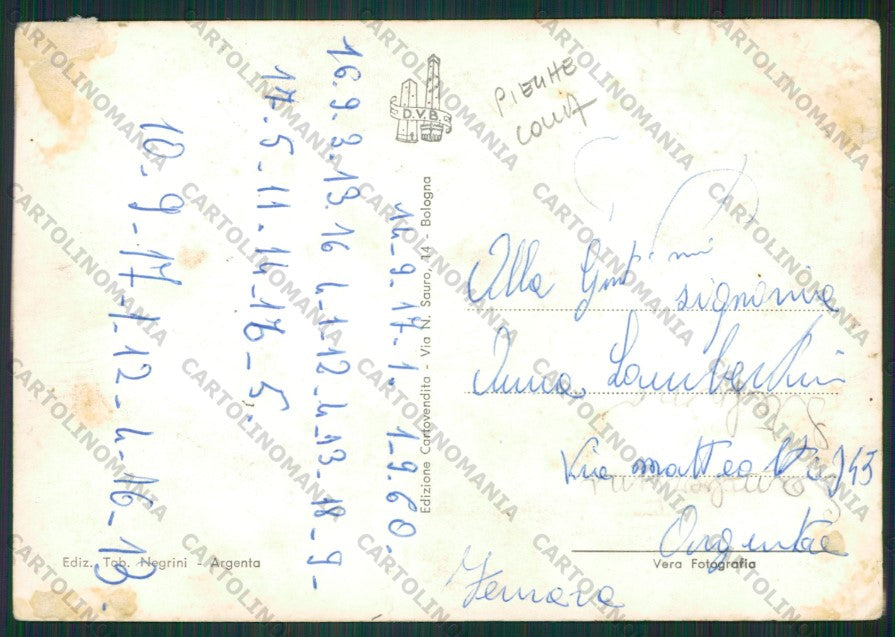 16.9.3.13.16 4-1-12-4-13-18-9-
17.5-11-14-18-5-
10-9-17-1-12-4-16-13.
14-9.17.1. 1.9.60.
D.V.B.
Edizione Cartovendita - Via N. Sauro, 14 - Bologna
PIEGHE
Alla Gent.mi
signorina
Anna Lambertini
Via matteotti 145
Argenta
Ferrara
Ediz. Tab. Negrini - Argenta
Vera Fotografia
CARTOLINOMANIA